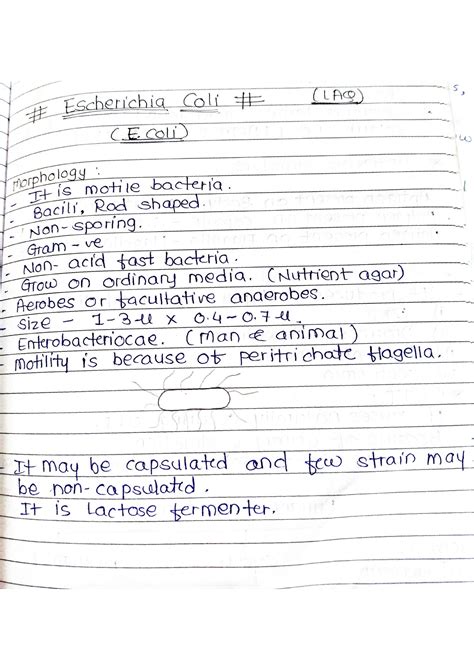 # Escherichia Coli # (LAQ)
(E.coli)
Morphology :
- It is motile bacteria.
- Bacili, Rod shaped.
- Non-sporing.
- Gram -ve
- Non-acid fast bacteria.
- Grow on ordinary media. (Nutrient agar)
- Aerobes or facultative anaerobes.
- Size - 1-3-u x 0.4-0.7u.
- Enterobacteriocae. (man & animal)
- Motility is because of peritrichate flagella.
- It may be capsulated and few strain may
be non-capsulated.
It is Lactose fermenter.